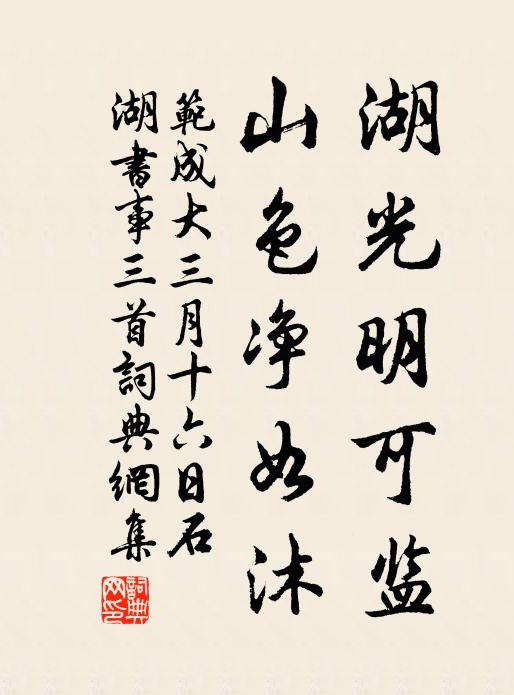 湖光明可监
山色净如沐
範成大三月十六日石
湖書事三首詞典網集
詞典
网印